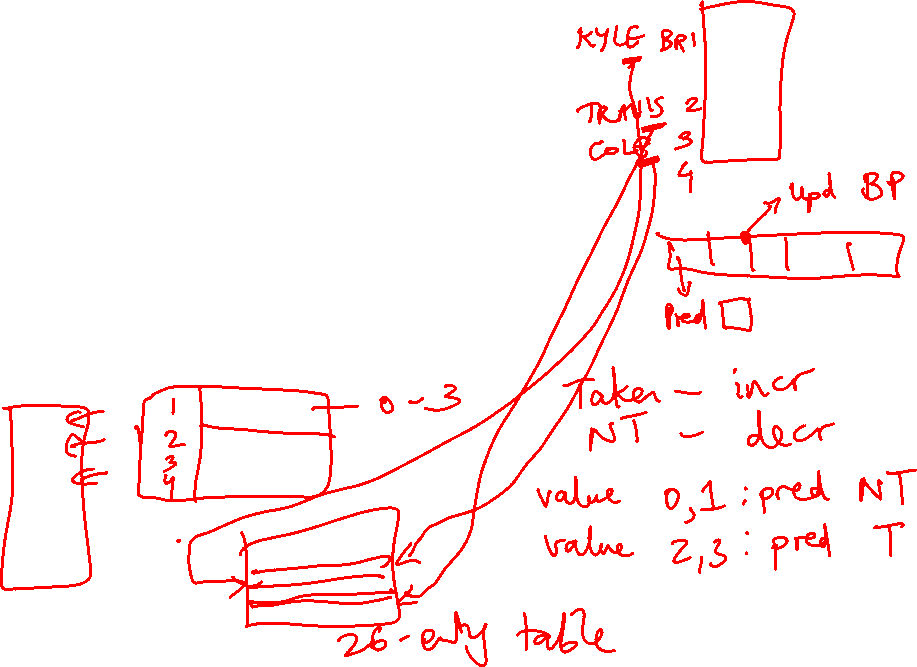 KYLE BR1
TRAVIS 2
COLE 3
4
Upd BP
Pred
1
2
3
4
0-3
Taken - incr
NT - decr
value 0,1 : pred NT
value 2,3 : pred T
26-entry table